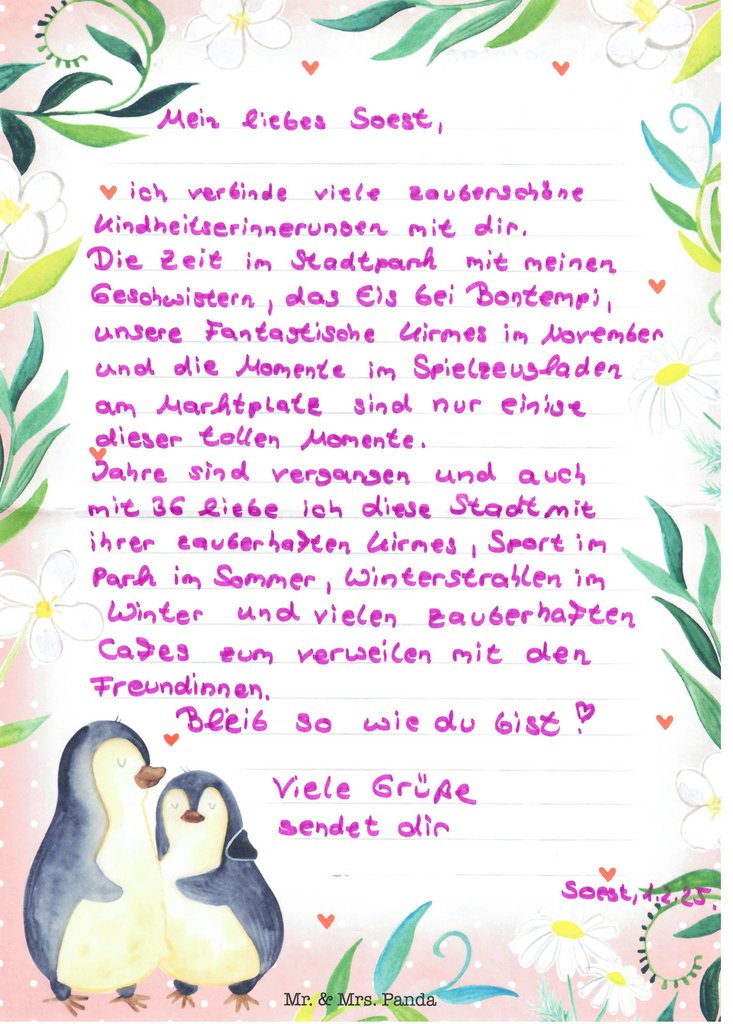 Mein liebes Soest,
ich verbinde viele zauberschöne
Kindheitserinnerungen mit dir.
Die Zeit im Stadtpark mit meinen
Geschwistern, das Eis bei Bontempi,
unsere Fantastische Kirmes im November
und die Momente im Spielzeugladen
am Marktplatz sind nur einige
dieser tollen Momente.
Jahre sind vergangen und auch
mit 36 liebe ich diese Stadt mit
ihrer zauberhaften Kirmes, Sport im
Park im Sommer, Winterstrahlen im
Winter und vielen zauberhaften
Cafes zum verweilen mit den
Freundinnen.
Bleib so wie du bist!
Viele Grüße
sendet dir
Soest, 1.2.25.
Mr. & Mrs. Panda